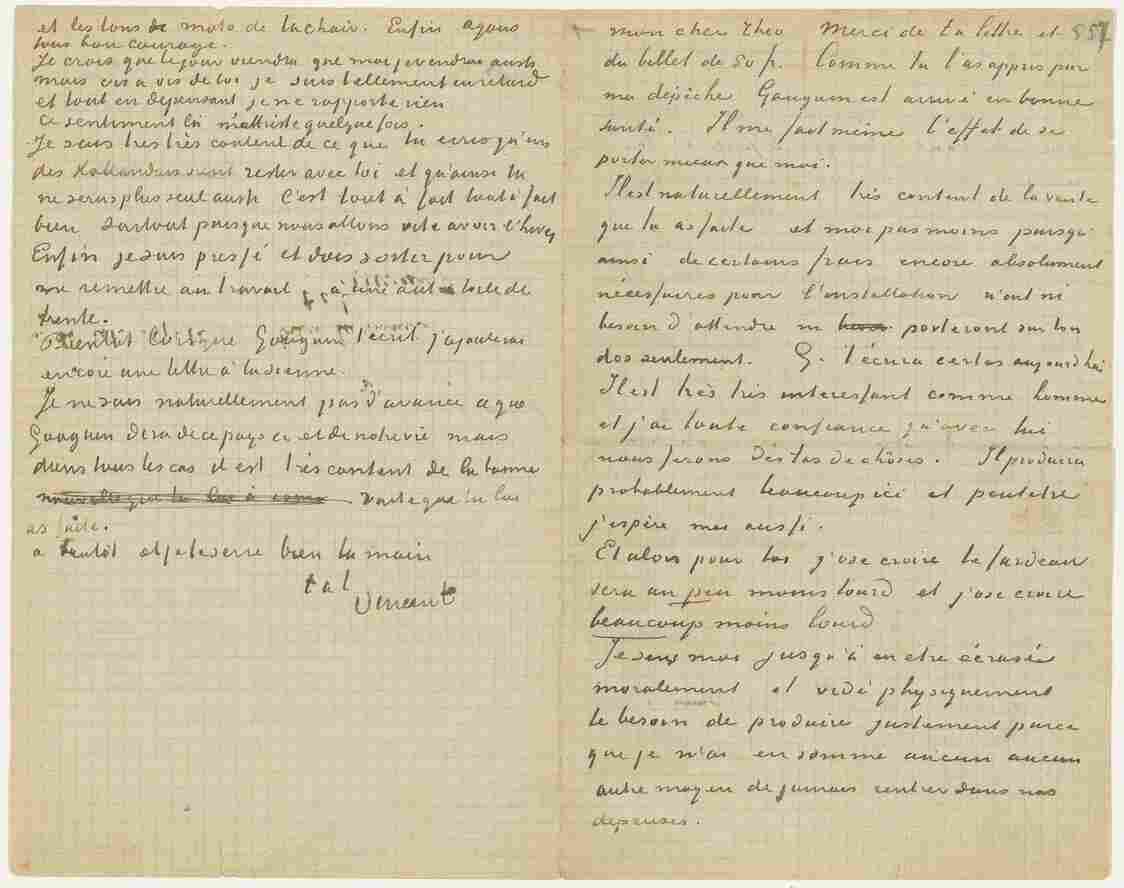 et les tons de moto de la chair. Enfin ayons
tous bon courage.
Je crois que le jour viendra que moi je vendrai aussi
mais vis à vis de toi je suis tellement en retard
et tout en depensant je ne rapporte rien
Ce sentiment là m'attriste quelquefois.
Je suis très très content de ce que tu ecris qu'un
des Hollandais vient rester avec toi et qu'ainsi tu
ne seras plus seul aussi C'est tout à fait tout à fait
bien surtout puisque nous allons vite avoir l'hiver
Enfin je suis pressé et dois sortir pour
me remettre au travail à une autre toile de
trente.
Bientôt lorsque Gauguin t'ecrit j'ajouterai
encore une lettre à la sienne.
Je ne sais naturellement pas d'avance ce que
Gauguin dira de ce pays ci et de notre vie mais
dans tous les cas il est très content de la bonne
vente que tu lui
as faite.
a bientôt et je te serre bien la main
t. à t.
Vincent
mon cher Theo Merci de ta lettre et 557
du billet de 50 fr. Comme tu l'as appris par
ma dépèche Gauguin est arrivé en bonne
santé. Il me fait même l'effet de se
porter mieux que moi.
Il est naturellement très content de la vente
que tu as faite et moi pas moins puisqu'
ainsi de certains frais encore absolument
nécessaires pour l'installation n'ont ni
besoin d'attendre ni porteront sur ton
dos seulement. G. t'écrira certes aujourd'hui
Il est très très interessant comme homme
et j'ai toute confiance qu'avec lui
nous ferons des tas de choses. Il produira
probablement beaucoup ici et peutetre
j'espère moi aussi.
Et alors pour toi j'ose croire le fardeau
sera un peu moins lourd et j'ose croire
beaucoup moins lourd
Je sens moi jusqu'à en etre écrasé
moralement et vidé physiquement
le besoin de produire justement parce
que je n'ai en somme aucun aucun
autre moyen de jamais rentrer dans nos
depenses.